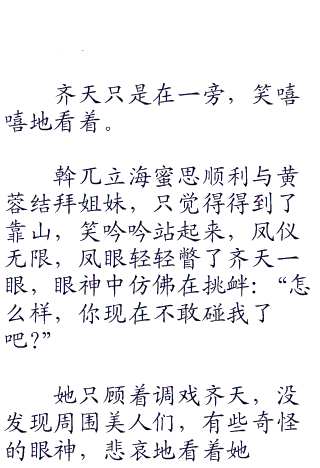 齐天只是在一旁，笑嘻
嘻地看着。
斡兀立海蜜思顺利与黄
蓉结拜姐妹，只觉得得到了
靠山，笑吟吟站起来，凤仪
无限，凤眼轻轻瞥了齐天一
眼，眼神中仿佛在挑衅：“怎
么样，你现在不敢碰我了
吧？”
她只顾着调戏齐天，没
发现周围美人们，有些奇怪
的眼神，悲哀地看着她